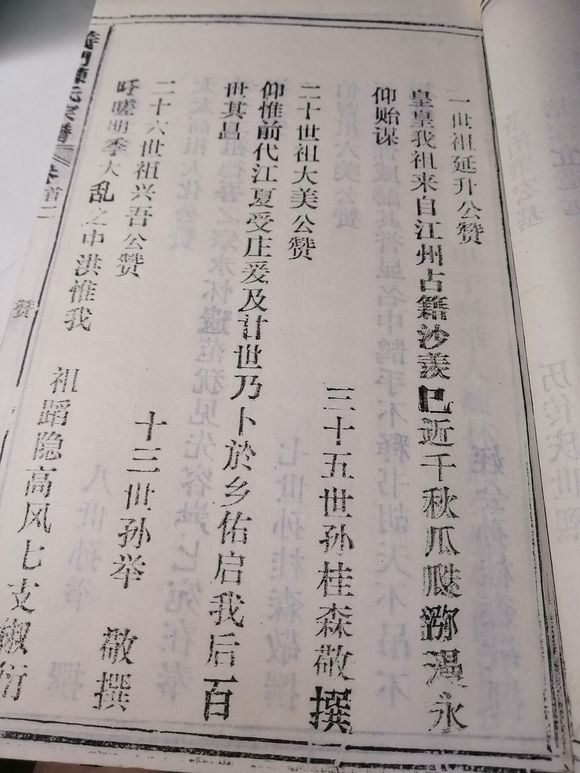 一世祖延升公赞
皇皇我祖来自江州占籍沙羡已近千秋瓜瓞弥漫永
仰贻谋
二十世祖大美公赞 三十五世孙桂森敬撰
仰惟前代江夏受庄爰及廿世乃卜於乡佑启我后百
世其昌
二十六世祖兴吾公赞 十三世孙举 敬撰
呼嗟明季大乱之中洪惟我 祖蹈隐高风七支椒衍
氏宗谱 首二 赞